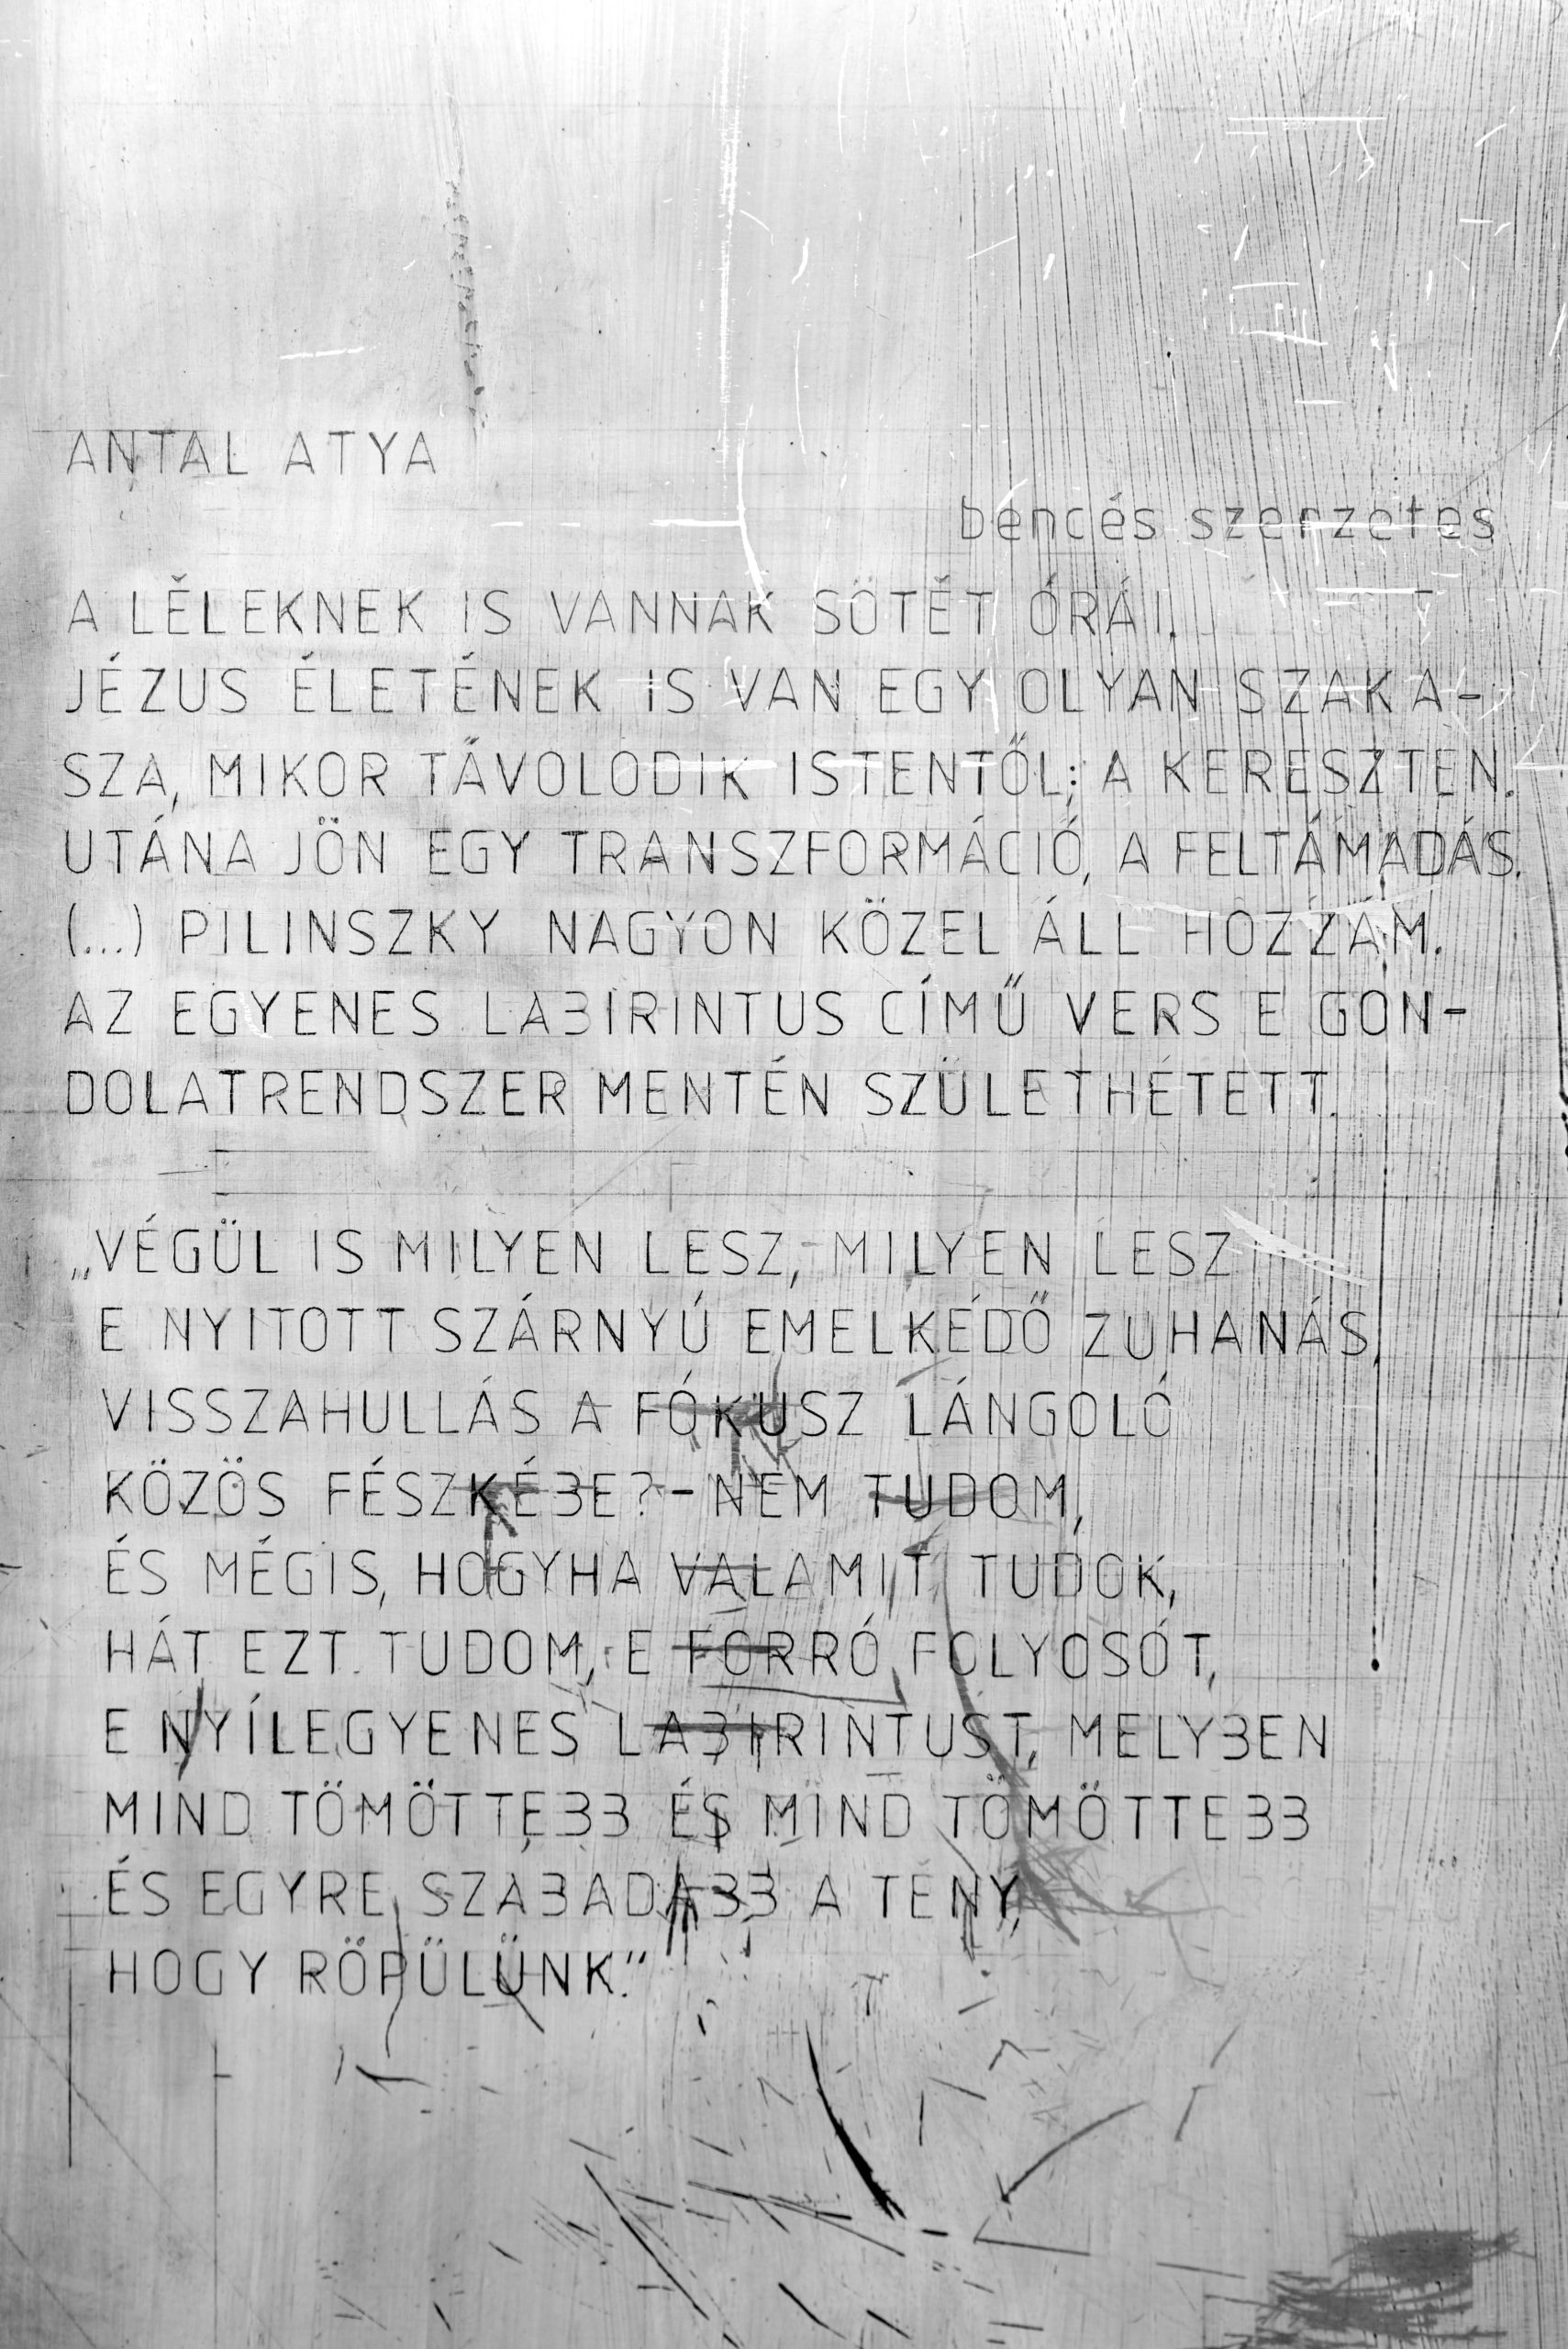 ANTAL ATYA
bencés szerzetes
A LÉLEKNEK IS VANNAK SÖTÉT ÓRÁI.
JÉZUS ÉLETÉNEK IS VAN EGY OLYAN SZAKA-
SZA, MIKOR TÁVOLODIK ISTENTŐL; A KERESZTEN.
UTÁNA JÖN EGY TRANSZFORMÁCIÓ, A FELTÁMADÁS.
(...) PILINSZKY NAGYON KÖZEL ÁLL HOZZÁM.
AZ EGYENES LABIRINTUS CÍMŰ VERS E GON-
DOLATRENDSZER MENTÉN SZÜLETHETETT.
„VÉGÜL IS MILYEN LESZ, MILYEN LESZ
E NYITOTT SZÁRNYÚ EMELKEDŐ ZUHANÁS,
VISSZAHULLÁS A FÓKUSZ LÁNGOLÓ
KÖZÖS FÉSZKÉBE? - NEM TUDOM,
ÉS MÉGIS, HOGYHA VALAMIT TUDOK,
HÁT EZT TUDOM, E FORRÓ FOLYOSÓT,
E NYÍLEGYENES LABIRINTUST, MELYBEN
MIND TÖMÖTTEBB ÉS MIND TÖMÖTTEBB
ÉS EGYRE SZABADABB A TÉNY,
HOGY RÖPÜLÜNK."